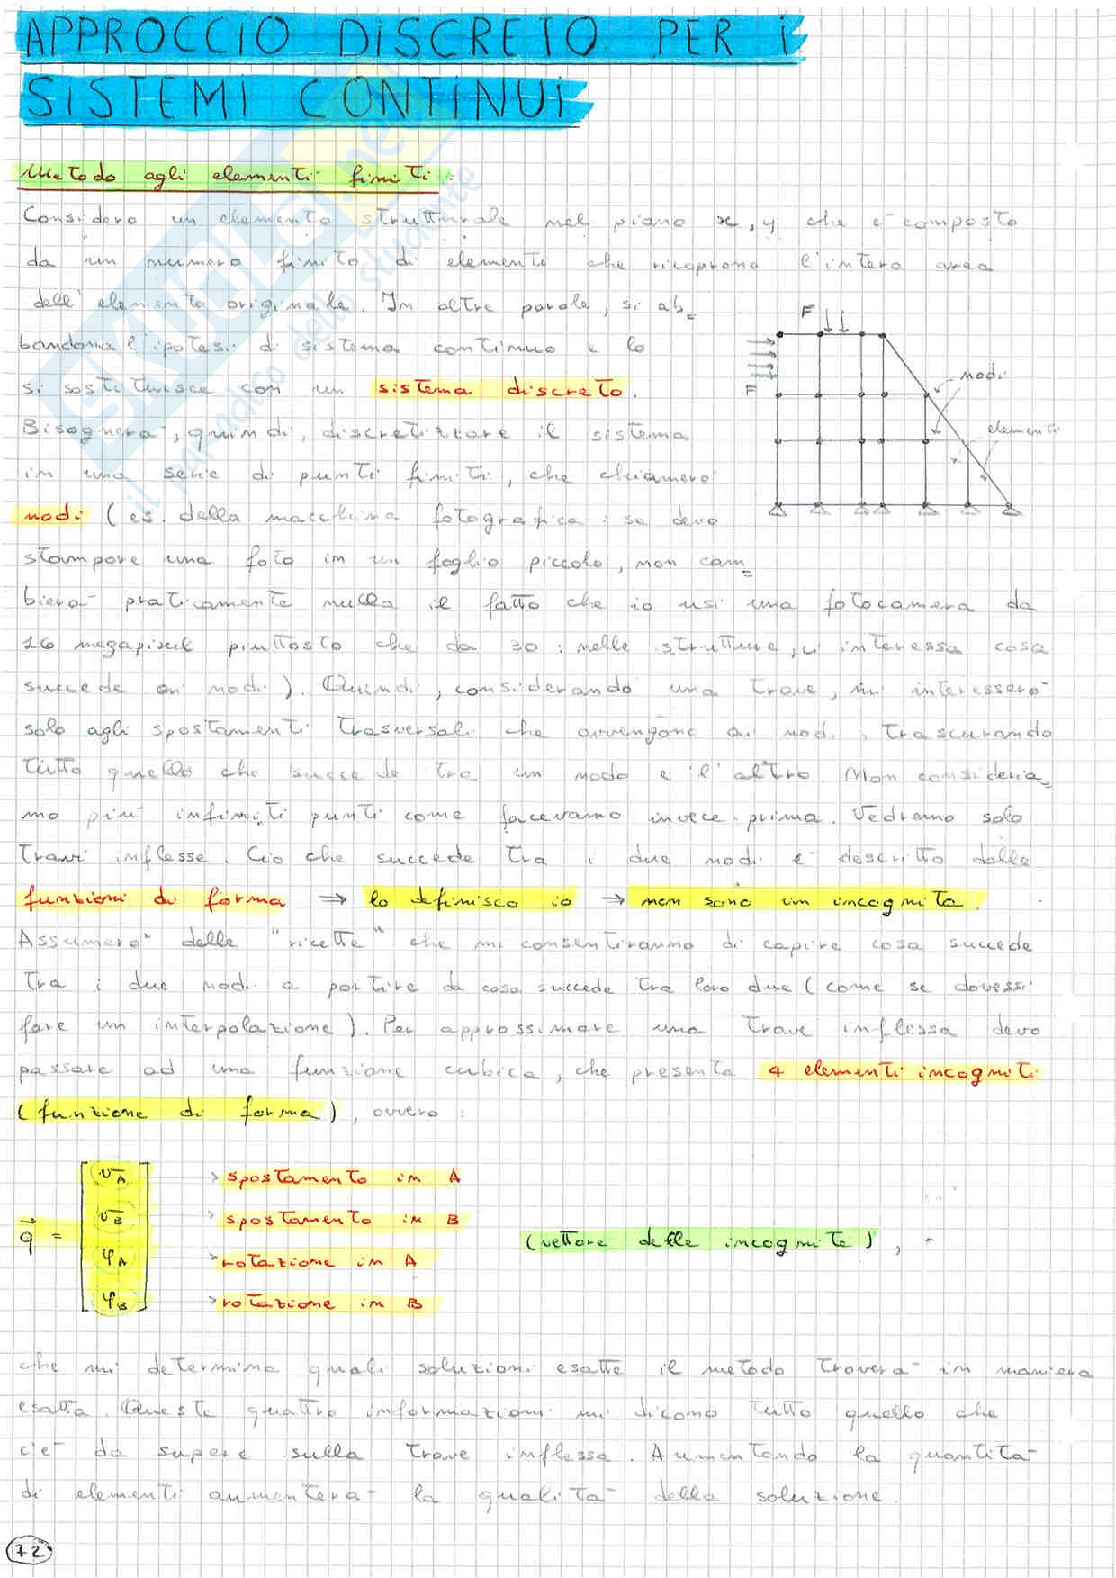 APPROCCIO DISCRETO PER I
SISTEMI CONTINUI
Metodo agli elementi finiti:
Considero un elemento strutturale nel piano x, y che è composto
da un numero finito di elementi che ricoprono l'intera area
dell'elemento originale. In altre parole, si ab=
bandona l'ipotesi di sistema continuo e lo
si sostituisce con un sistema discreto.
Bisognerà, quindi, discretizzare il sistema
in una serie di punti finiti, che chiamerò
nodi (es. della macchina fotografica: se devo
stampare una foto in un foglio piccolo, non cam=
bierà praticamente nulla il fatto che io usi una fotocamera da
16 megapixel piuttosto che da 30: nelle strutture, ci interessa cosa
succede ai nodi). Quindi, considerando una trave, mi interesserò
solo agli spostamenti trasversali che avvengono ai nodi, trascurando
tutto quello che succede tra un nodo e l'altro. Non consideria=
mo più infiniti punti come facevamo invece prima. Vedremo solo
travi inflesse. Ciò che succede tra i due nodi è descritto dalle
funzioni di forma → lo definisco io → non sono un incognita.
Assumerò delle "ricette" che mi consentiranno di capire cosa succede
tra i due nodi a partire da cosa succede tra loro due (come se dovessi
fare un interpolazione). Per approssimare una trave inflessa devo
passare ad una funzione cubica, che presenta 4 elementi incogniti
(funzione di forma), ovvero:
F
F
nodi
elementi
q = [ v_A → spostamento in A
v_B → spostamento in B
φ_A → rotazione in A
φ_B ] → rotazione in B
(vettore delle incognite),
che mi determina quali soluzioni esatte il metodo troverà in maniera
esatta. Queste quattro informazioni mi dicono tutto quello che
c'è da sapere sulla trave inflessa. Aumentando la quantità
di elementi aumenterà la qualità della soluzione.
72